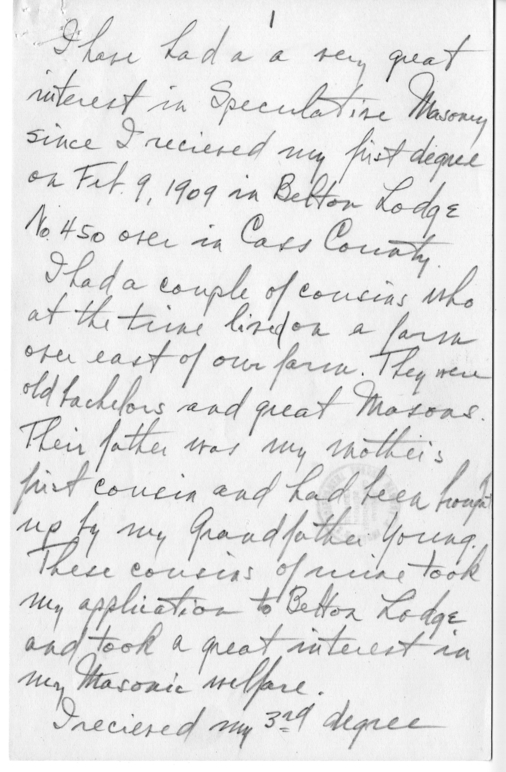 1
I have had a a very great
interest in Speculative Masonry
since I recieved my first degree
on Feb. 9, 1909 in Belton Lodge
No. 450 over in Cass County.
I had a couple of cousins who
at the time lived on a farm
over east of our farm. They were
old bachelors and great Masons.
Their father was my mother's
first cousin and had been brought
up by my Grandfather Young.
These cousins of mine took
my application to Belton Lodge
and took a great interest in
my Masonic welfare.
I recieved my 3rd degree